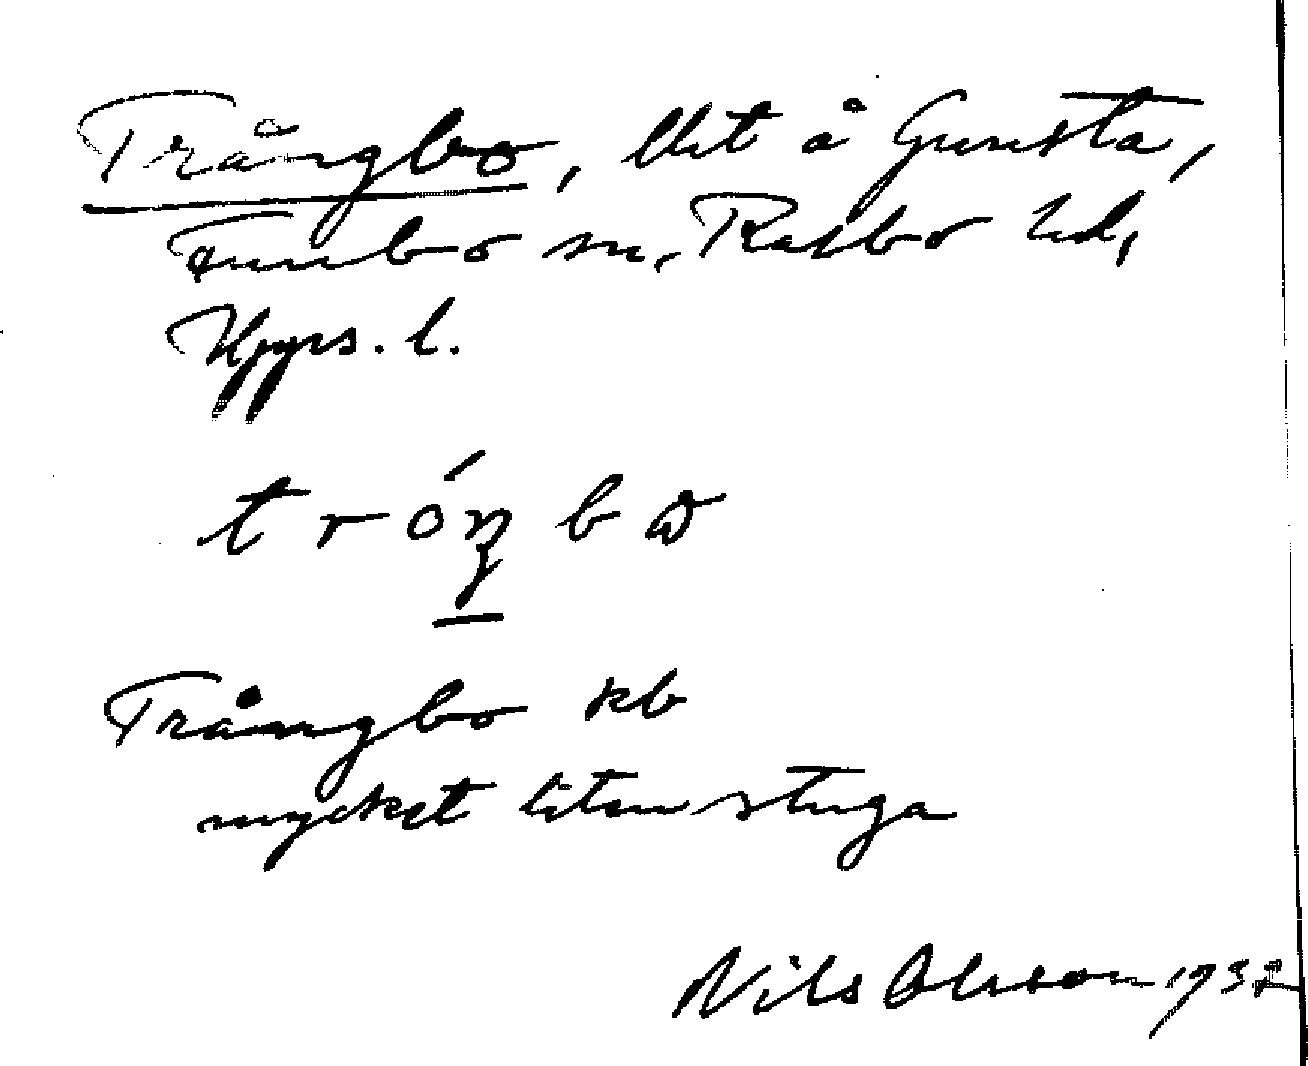 Trångbo, lht å Gunsta,
Funbo sn, Rasbo hd,
Upps. l.
tróŋbω
Trångbo kb
mycket liten stuga
Nils Olsson 1932